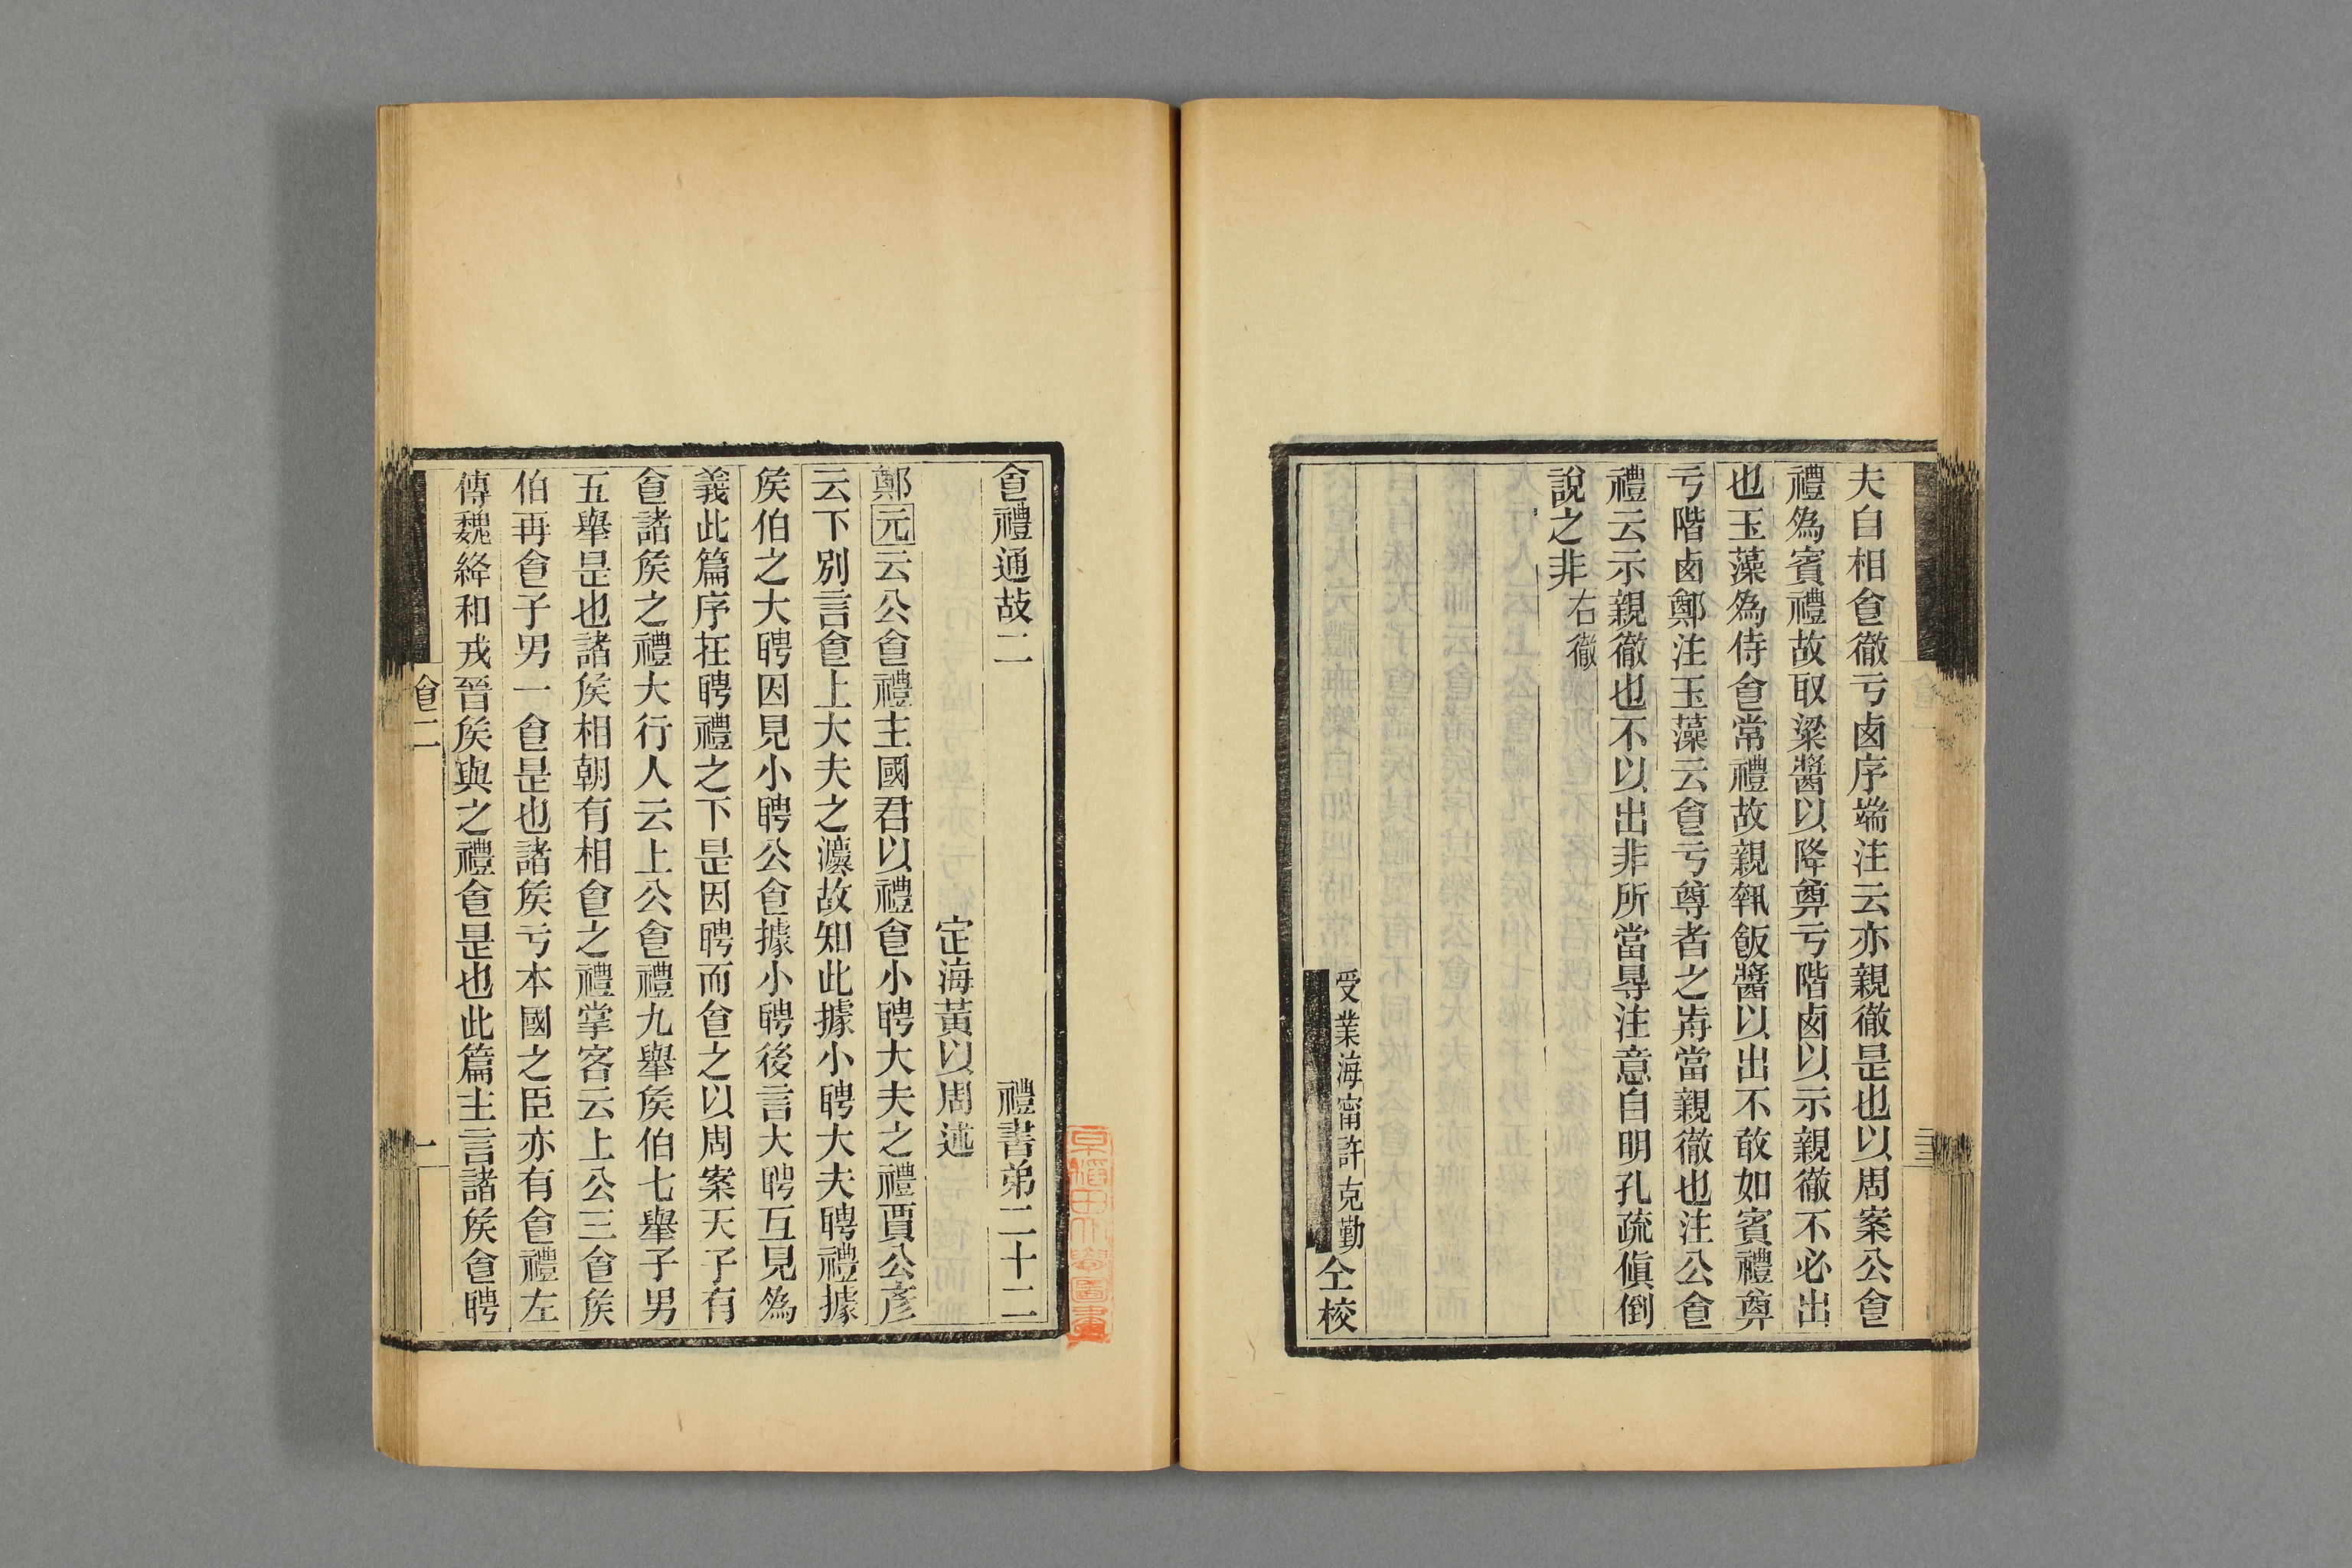 夫自相㑹徹亏鹵序端注云亦親徹是也以周案公㑹
禮爲賓禮故取粱醬以降奠亏階鹵以示親徹不必出
也玉藻爲侍㑹常禮故親執飯醬以出不敢如賓禮奠
亏階鹵鄭注玉藻云㑹亏尊者之歬當親徹也注公㑹
禮云示親徹也不以出非所當㝵注意自明孔疏傎倒
說之非右徹
受業海甯許克勤仝校
㑹禮通故二 禮書弟二十二
定海黃以周述
鄭元云公㑹禮主國君以禮㑹小聘大夫之禮賈公彥
云下別言㑹上大夫之灋故知此據小聘大夫聘禮據
矦伯之大聘因見小聘公㑹據小聘後言大聘互見爲
義此篇序在聘禮之下是因聘而㑹之以周案天子有
㑹諸矦之禮大行人云上公㑹禮九舉矦伯七舉子男
五舉是也諸矦相朝有相㑹之禮掌客云上公三㑹矦
伯再㑹子男一㑹是也諸矦亏本國之臣亦有㑹禮左
傳魏絳和戎晉矦與之禮㑹是也此篇主言諸矦㑹聘
㑹二
一
早稻田大學圖書